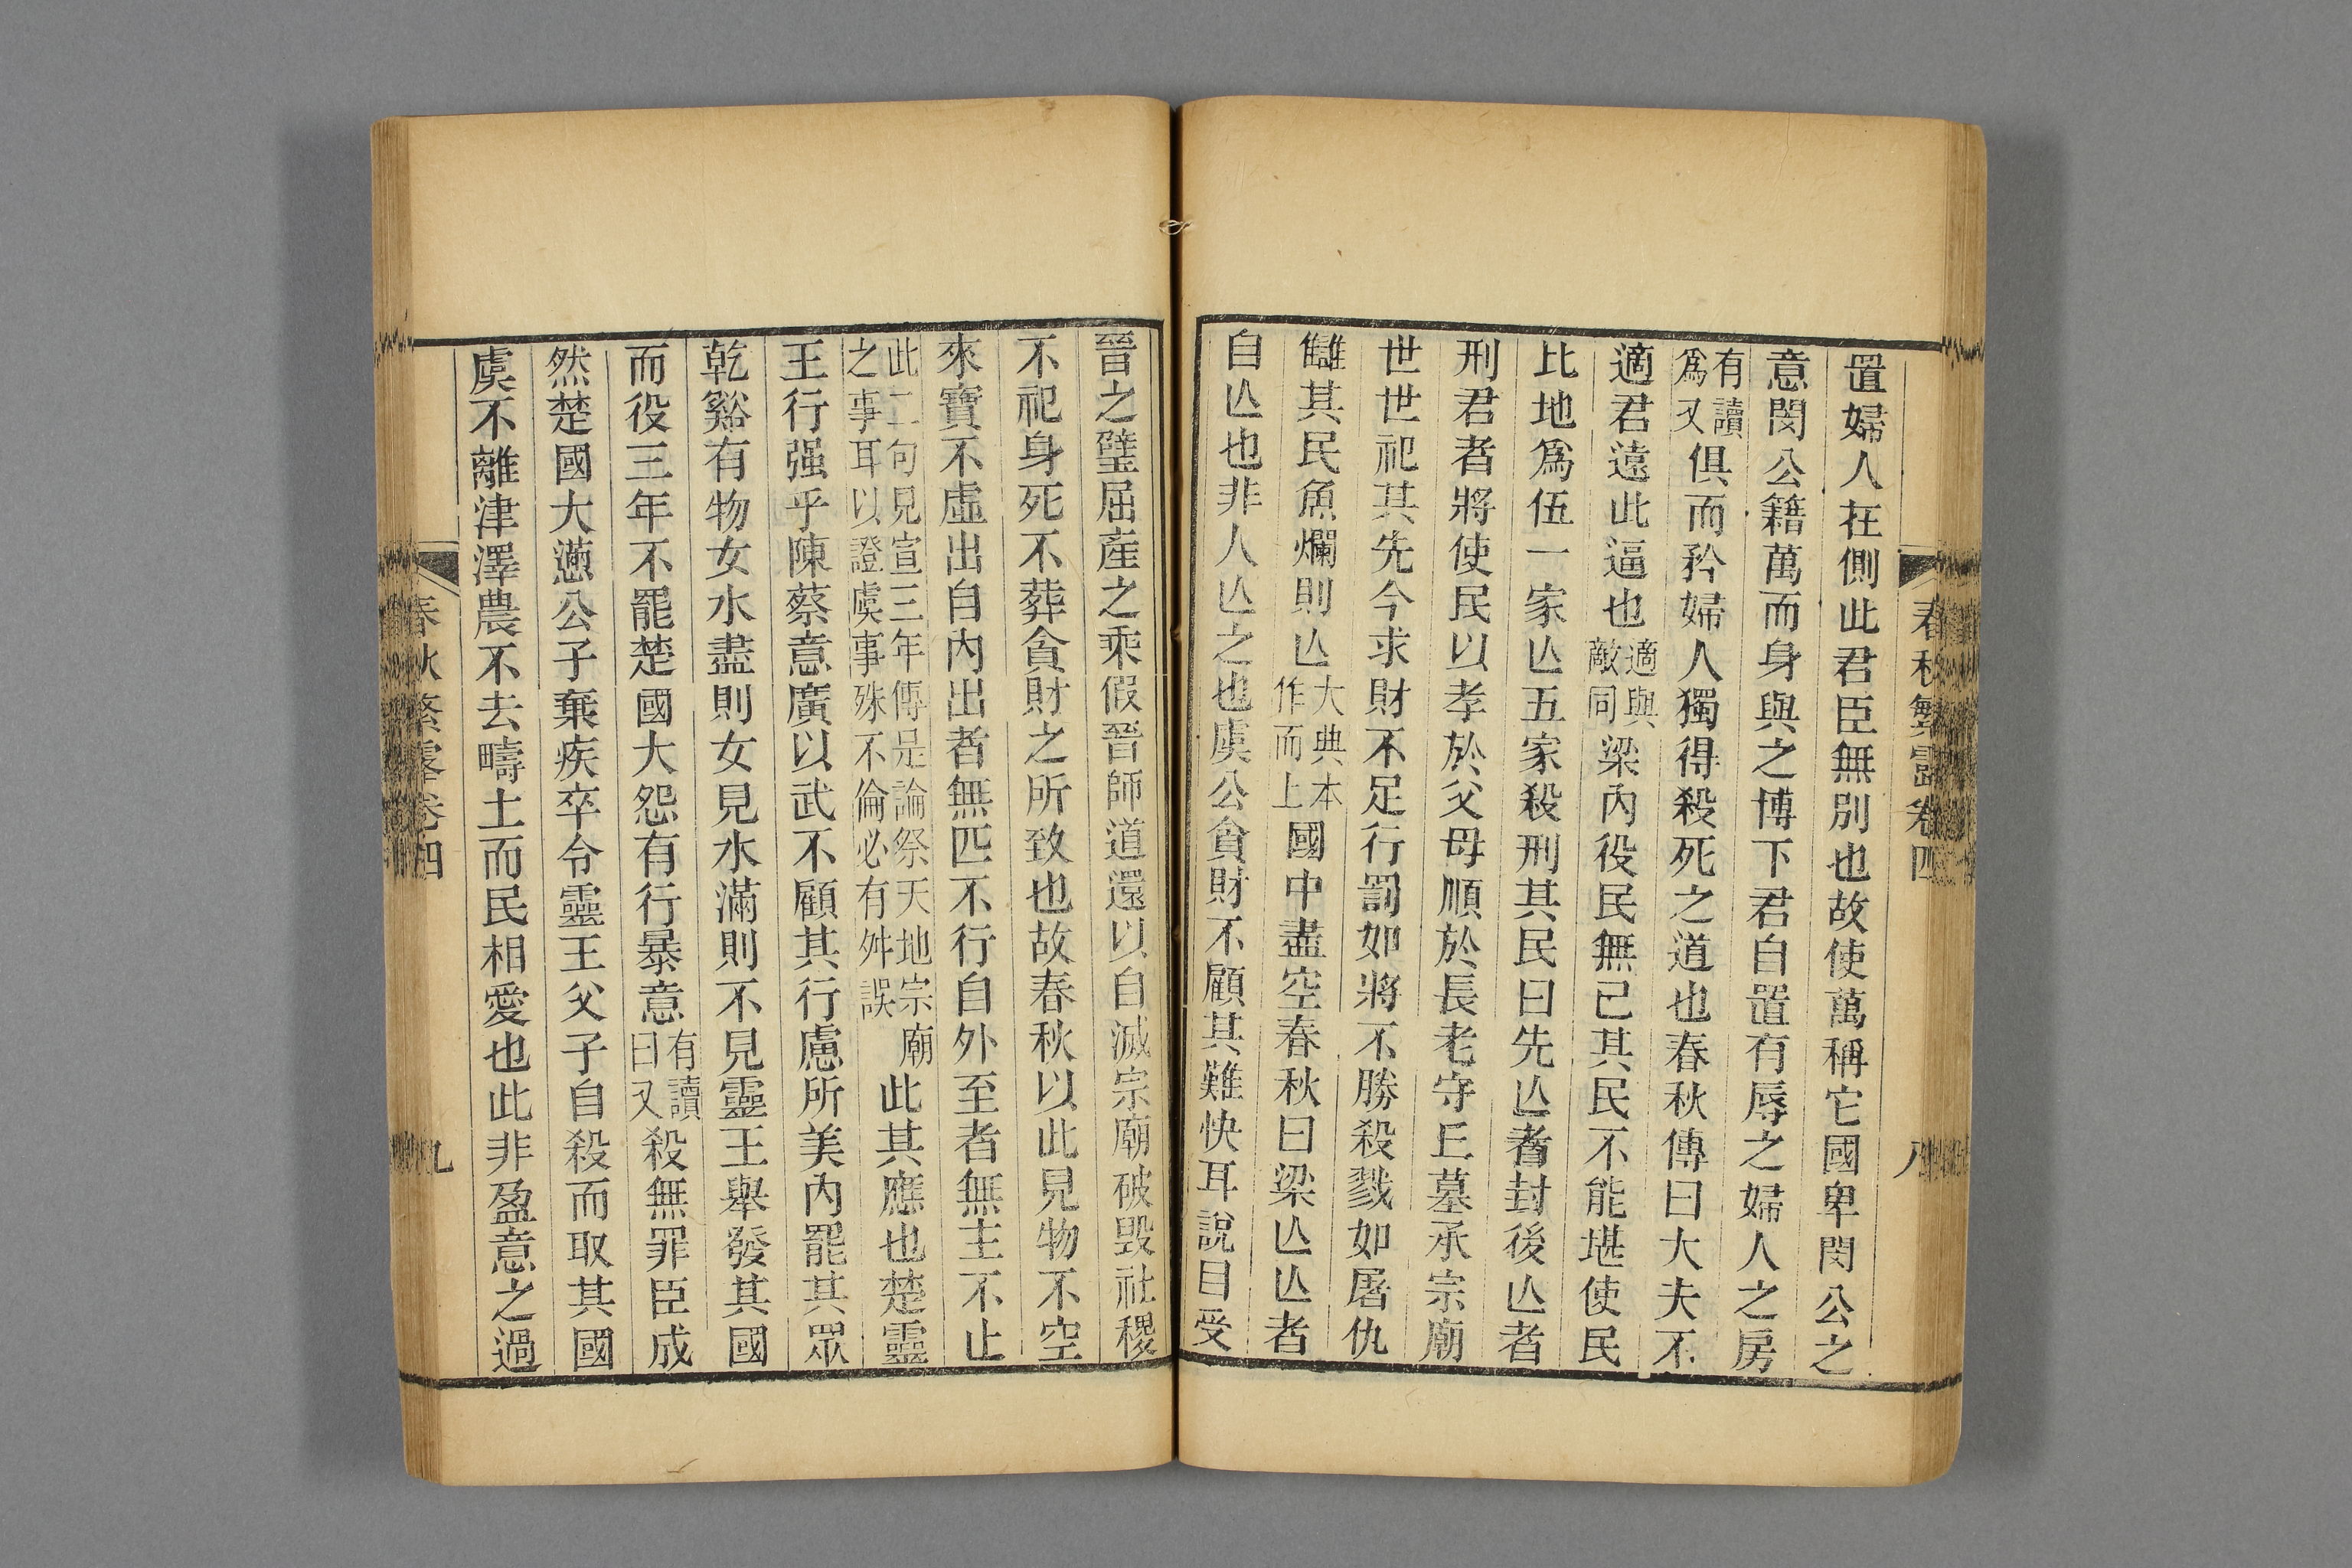 春秋繁露卷四 八
置婦人在側此君臣無別也故使萬稱它國卑閔公之
意閔公籍萬而身與之博下君自置有辱之婦人之房
有讀爲又俱而矜婦人獨得殺死之道也春秋傳曰大夫不
適君遠此逼也適與敵同梁內役民無已其民不能堪使民
比地爲伍一家亾五家殺刑其民曰先亾者封後亾者
刑君者將使民以孝於父母順於長老守丘墓承宗廟
世世祀其先今求財不足行罰如將不勝殺戮如屠仇
讎其民魚爛則亾大典本作而上國中盡空春秋曰梁亾亾者
自亾也非人亾之也虞公貪財不顧其難快耳說目受
晉之璧屈產之乘假晉師道還以自滅宗廟破毀社稷
不祀身死不葬貪財之所致也故春秋以此見物不空
來寶不虛出自內出者無匹不行自外至者無主不止
此二句見宣三年傳是論祭天地宗廟之事耳以證虞事殊不倫必有舛誤此其應也楚靈
王行强乎陳蔡意廣以武不顧其行慮所美內罷其眾
乾谿有物女水盡則女見水滿則不見靈王舉發其國
而役三年不罷楚國大怨有行暴意有讀曰又殺無罪臣成
然楚國大懣公子棄疾卒令靈王父子自殺而取其國
虞不離津澤農不去疇土而民相愛也此非盈意之過
春秋繁露卷四 九